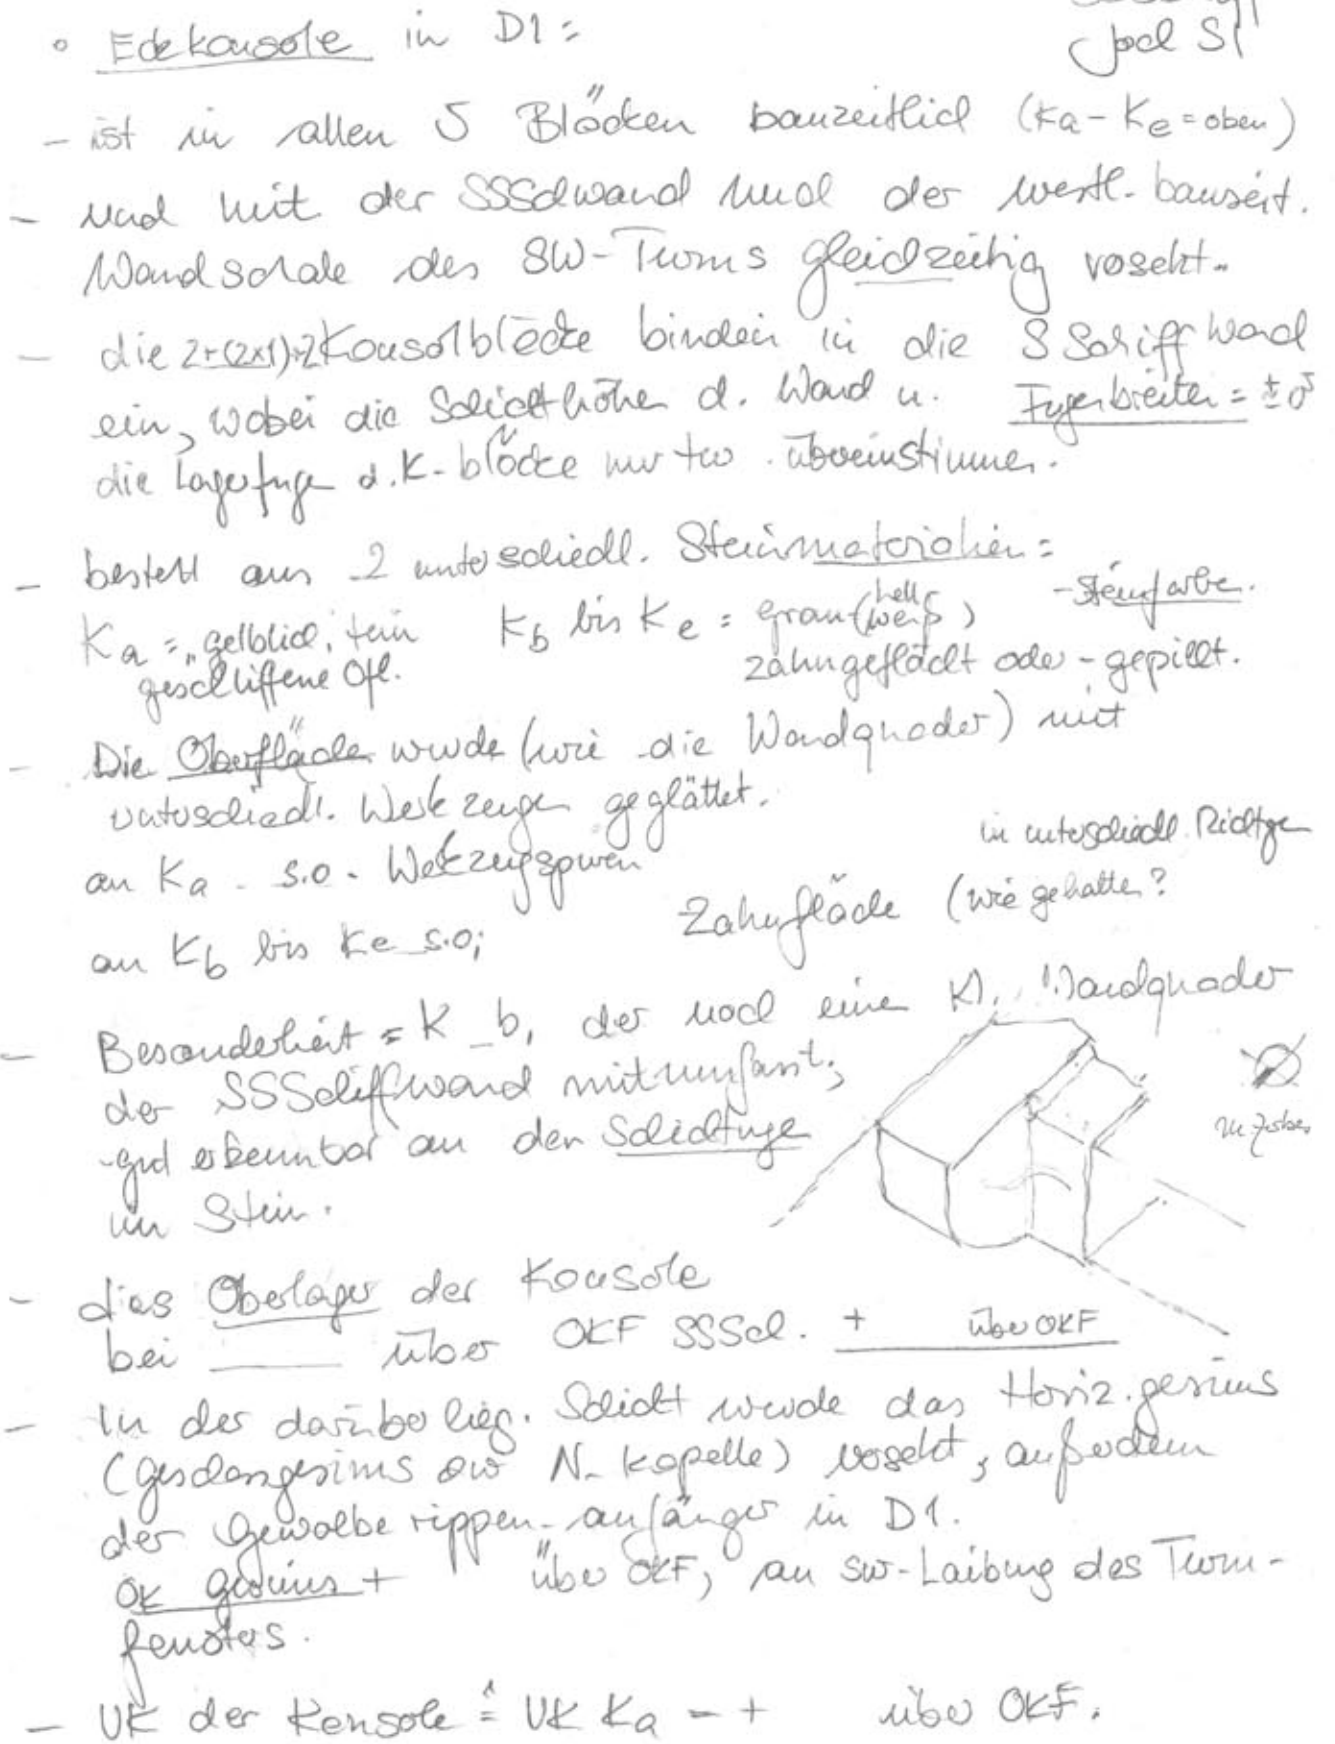 Joel S1
° Eckkonsole in D1:
- ist in allen 5 Blöcken bauzeitlich (Ka - Ke = oben)
- und mit der SSchwand und der westl. bauzeit.
Wandschale des SW-Turms gleichzeitig versetzt.
- die 2+(2x1)+2 Konsolblöcke binden in die S Schiffwand
ein, wobei die Schichthöhen d. Wand u. Fugenbreiten = ±0⁵
die Lagerfuge d. K-blöcke nur tw. übereinstimmen.
- besteht aus 2 unterschiedl. Steinmaterialien:
- Steinfarbe.
Ka = "gelblich, fein Kb bis Ke = grau (hell weiß)
geschliffene Ofl. zahngeflächt oder - gepillt.
- Die Oberfläche wurde (wie die Wandquader) mit
unterschiedl. Werkzeugen geglättet.
an Ka - s.o. Werkzeugspuren
in unterschiedl. Richtgen
Zahnfläche (wie gehalten?
an Kb bis Ke s.o;
- Besonderheit = K_b, der noch einen kl. Wandquader
der SSSchiffwand mitumfasst;
- gut erkennbar an den Schichtfuge
im Stein.
- das Oberlager der Konsole
bei ____ über OKF SSSch. + ____ über OKF
- In der darüber lieg. Schicht wurde das Horiz.gesims
(Geschossgesims der N-kapelle) versetzt, außerdem
der Gewölberippen-anfänger in D1.
OK Gesims + über OKF, an SW-Laibung des Turm-
fensters.
- UK der Konsole ≙ UK Ka - + über OKF.